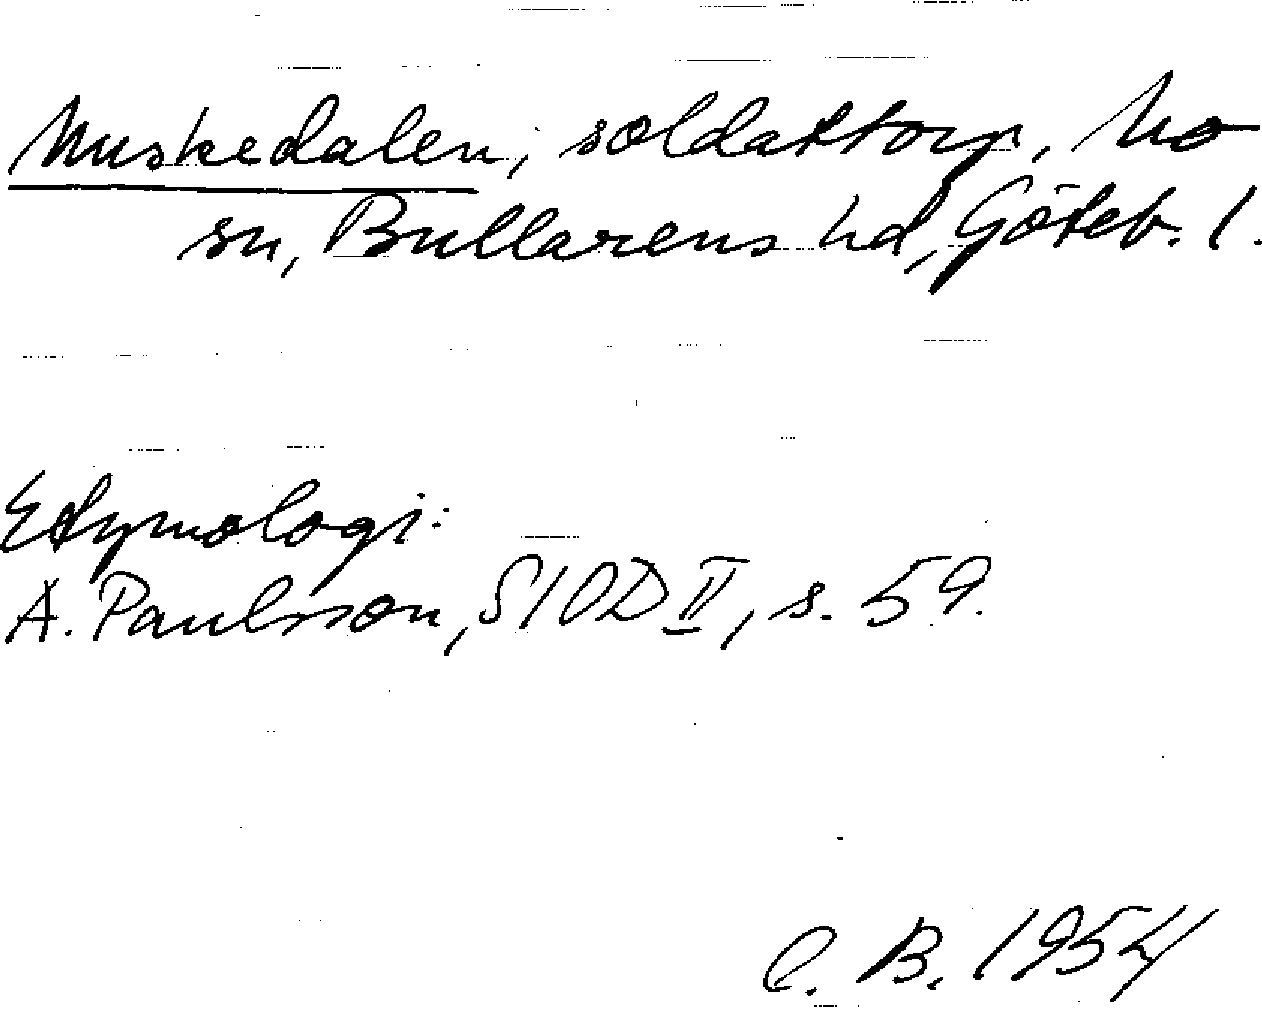 Muskedalen, soldattorp, Mo
sn, Bullarens hd, Göteb. l.
Etymologi:
A. Paulsson, SIOD II, s. 59.
C. B. 1954